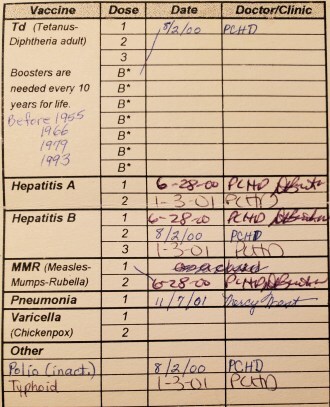 Vaccine Dose Date Doctor/Clinic
Td (Tetanus- 1 8/2/00 PCHD
Diphtheria adult) 2
3
Boosters are B*
needed every 10 B*
years for life. B*
Before 1955 B*
1966 B*
1979 B*
1993 B*
Hepatitis A 1 6-28-00 PCHD
2 1-3-01 PCHD
Hepatitis B 1 6-28-00 PCHD
2 8/2/00 PCHD
3 1-3-01 PCHD
MMR (Measles- 1
Mumps-Rubella) 2 6-28-00 PCHD
Pneumonia 1 11/7/01 Mercy West
Varicella 1
(Chickenpox) 2
Other
Polio (inact.) 8/2/00 PCHD
Typhoid 1-3-01 PCHD